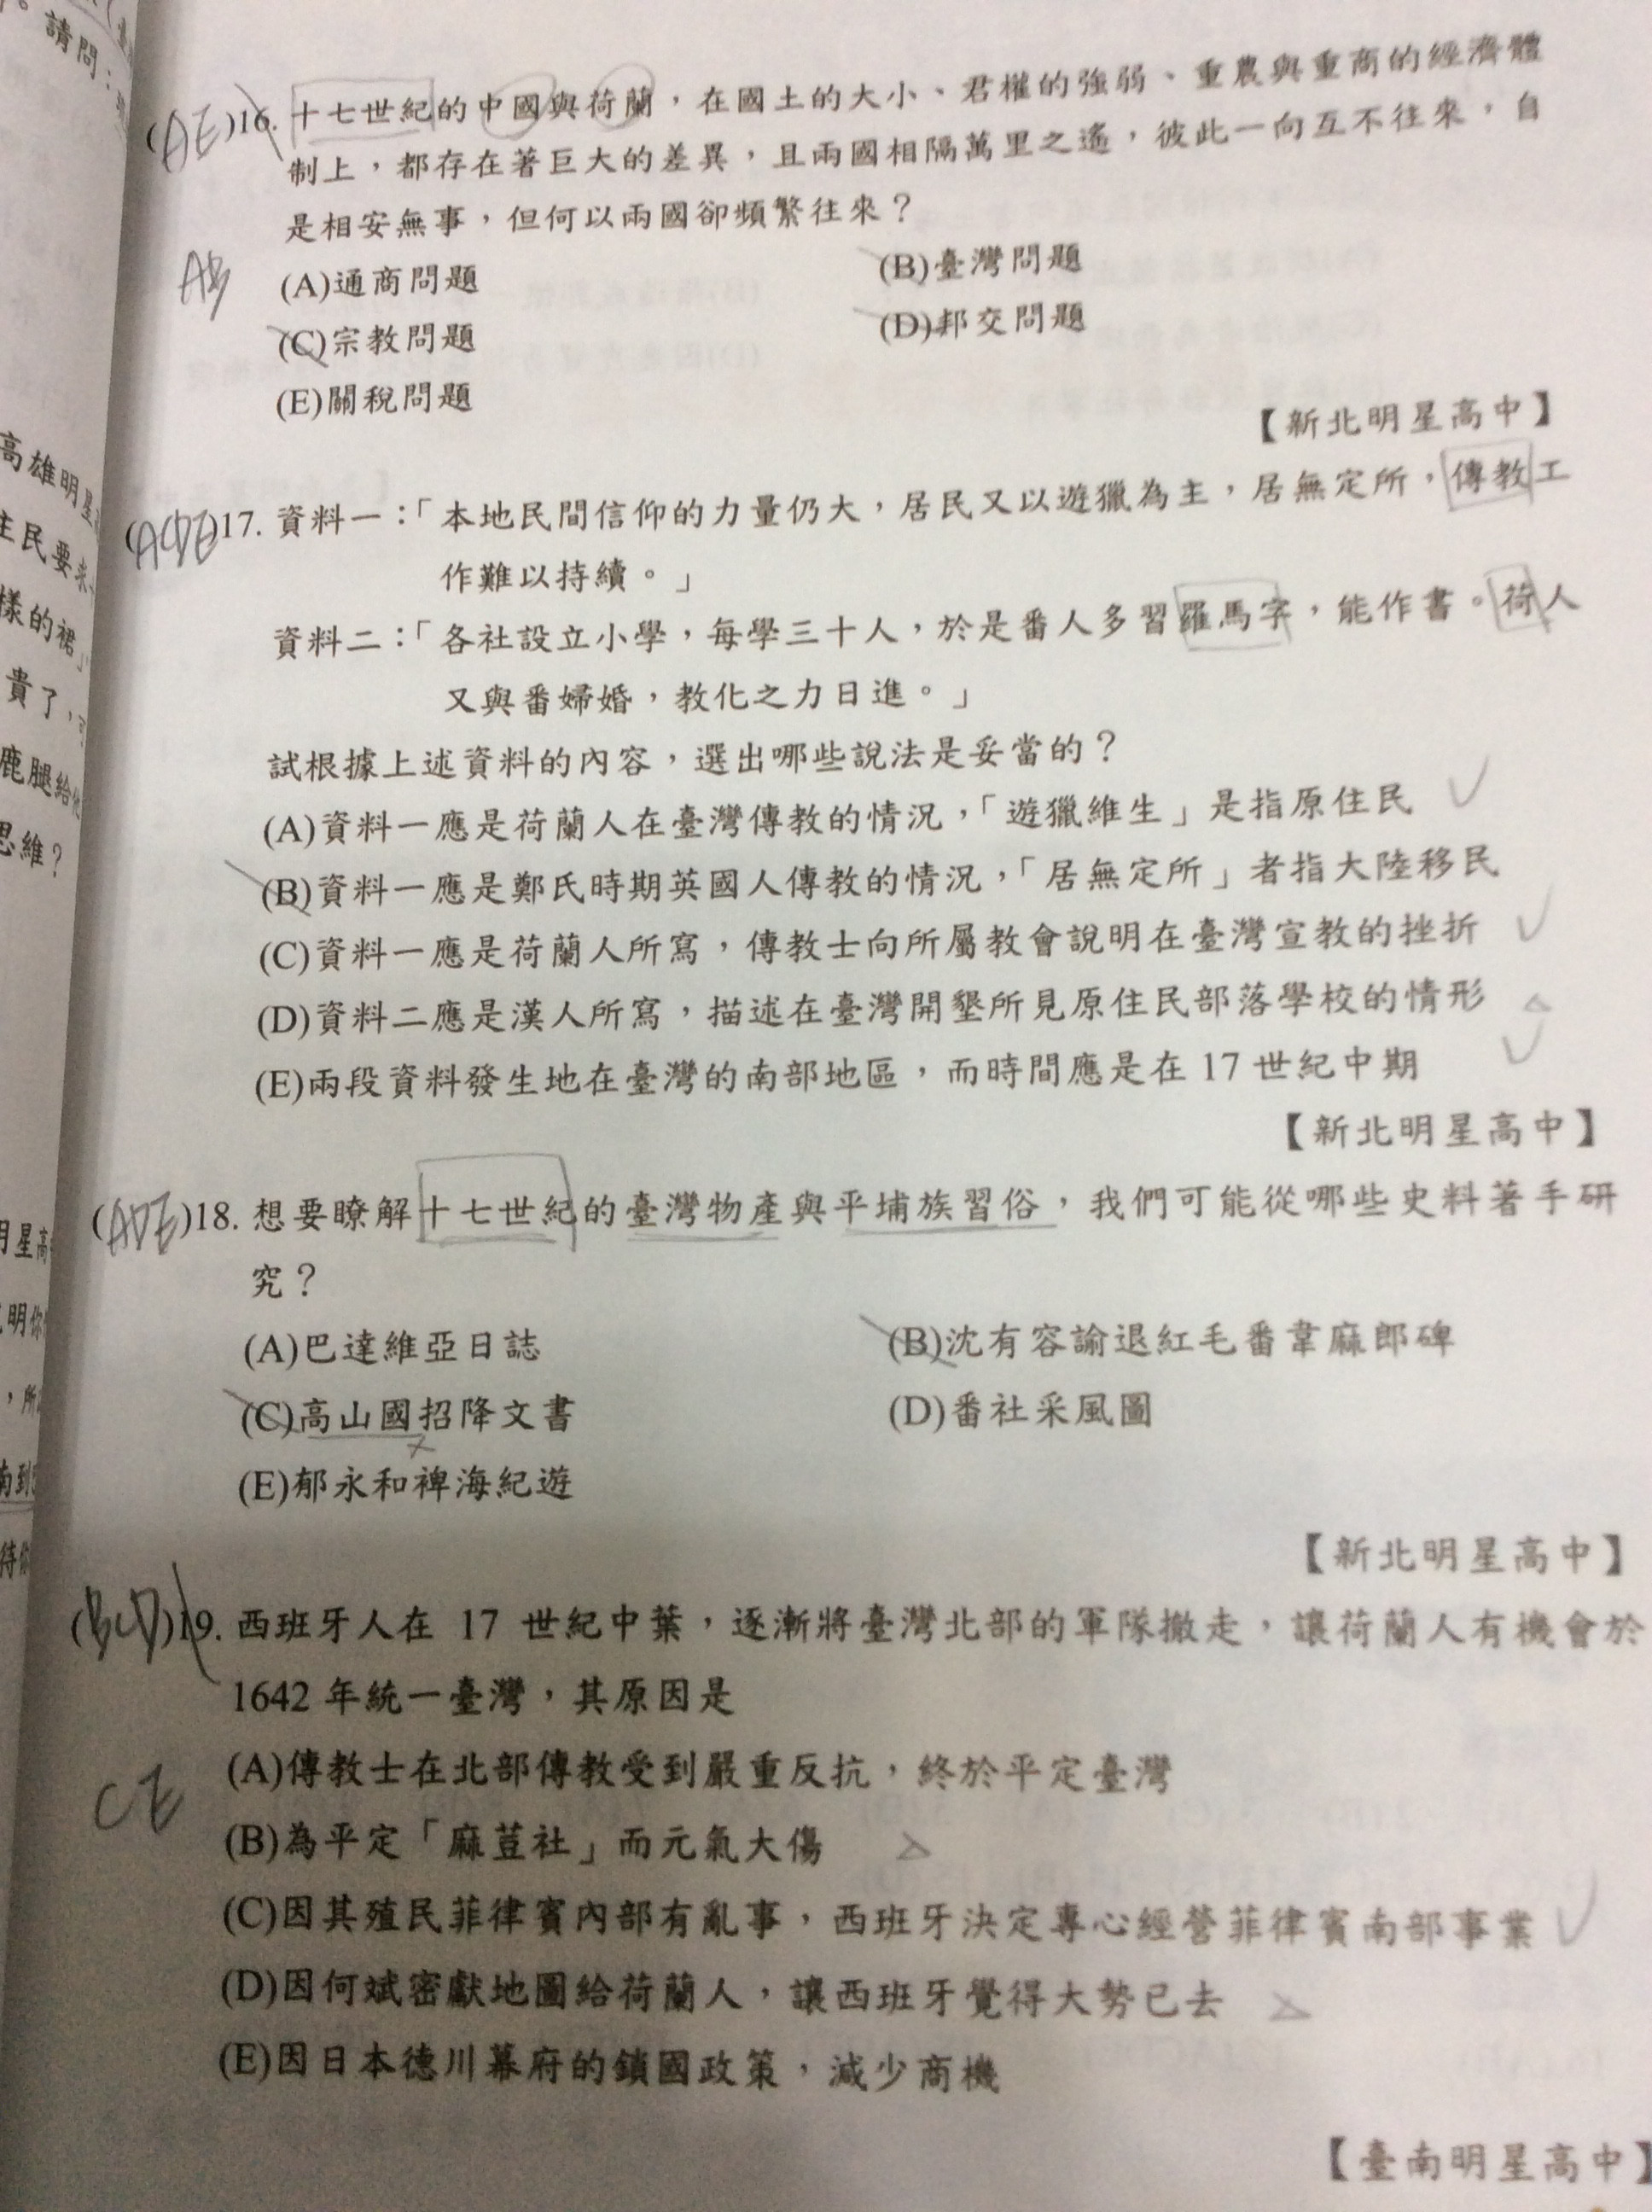 請問：
(AE)16. 十七世紀的中國與荷蘭，在國土的大小、君權的強弱、重農與重商的經濟體
制上，都存在著巨大的差異，且兩國相隔萬里之遙，彼此一向互不往來，自
是相安無事，但何以兩國卻頻繁往來？
AB
(A)通商問題 (B)臺灣問題
(C)宗教問題 (D)邦交問題
(E)關稅問題
【新北明星高中】
高雄明星
(ACDE)17. 資料一：「本地民間信仰的力量仍大，居民又以遊獵為主，居無定所，傳教工
主民要求
作難以持續。」
樣的裙」
資料二：「各社設立小學，每學三十人，於是番人多習羅馬字，能作書。荷人
貴了，
又與番婦婚，教化之力日進。」
鹿腿給他
試根據上述資料的內容，選出哪些說法是妥當的？
思維？
(A)資料一應是荷蘭人在臺灣傳教的情況，「遊獵維生」是指原住民
(B)資料一應是鄭氏時期英國人傳教的情況，「居無定所」者指大陸移民
(C)資料一應是荷蘭人所寫，傳教士向所屬教會說明在臺灣宣教的挫折
(D)資料二應是漢人所寫，描述在臺灣開墾所見原住民部落學校的情形
(E)兩段資料發生地在臺灣的南部地區，而時間應是在 17 世紀中期
【新北明星高中】
(ADE)18. 想要瞭解十七世紀的臺灣物產與平埔族習俗，我們可能從哪些史料著手研
究？
(A)巴達維亞日誌 (B)沈有容諭退紅毛番韋麻郎碑
(C)高山國招降文書 (D)番社采風圖
(E)郁永和裨海紀遊
【新北明星高中】
(BCD)19. 西班牙人在 17 世紀中葉，逐漸將臺灣北部的軍隊撤走，讓荷蘭人有機會於
1642 年統一臺灣，其原因是
CE
(A)傳教士在北部傳教受到嚴重反抗，終於平定臺灣
(B)為平定「麻荳社」而元氣大傷
(C)因其殖民菲律賓內部有亂事，西班牙決定專心經營菲律賓南部事業
(D)因何斌密獻地圖給荷蘭人，讓西班牙覺得大勢已去
(E)因日本德川幕府的鎖國政策，減少商機
【臺南明星高中】